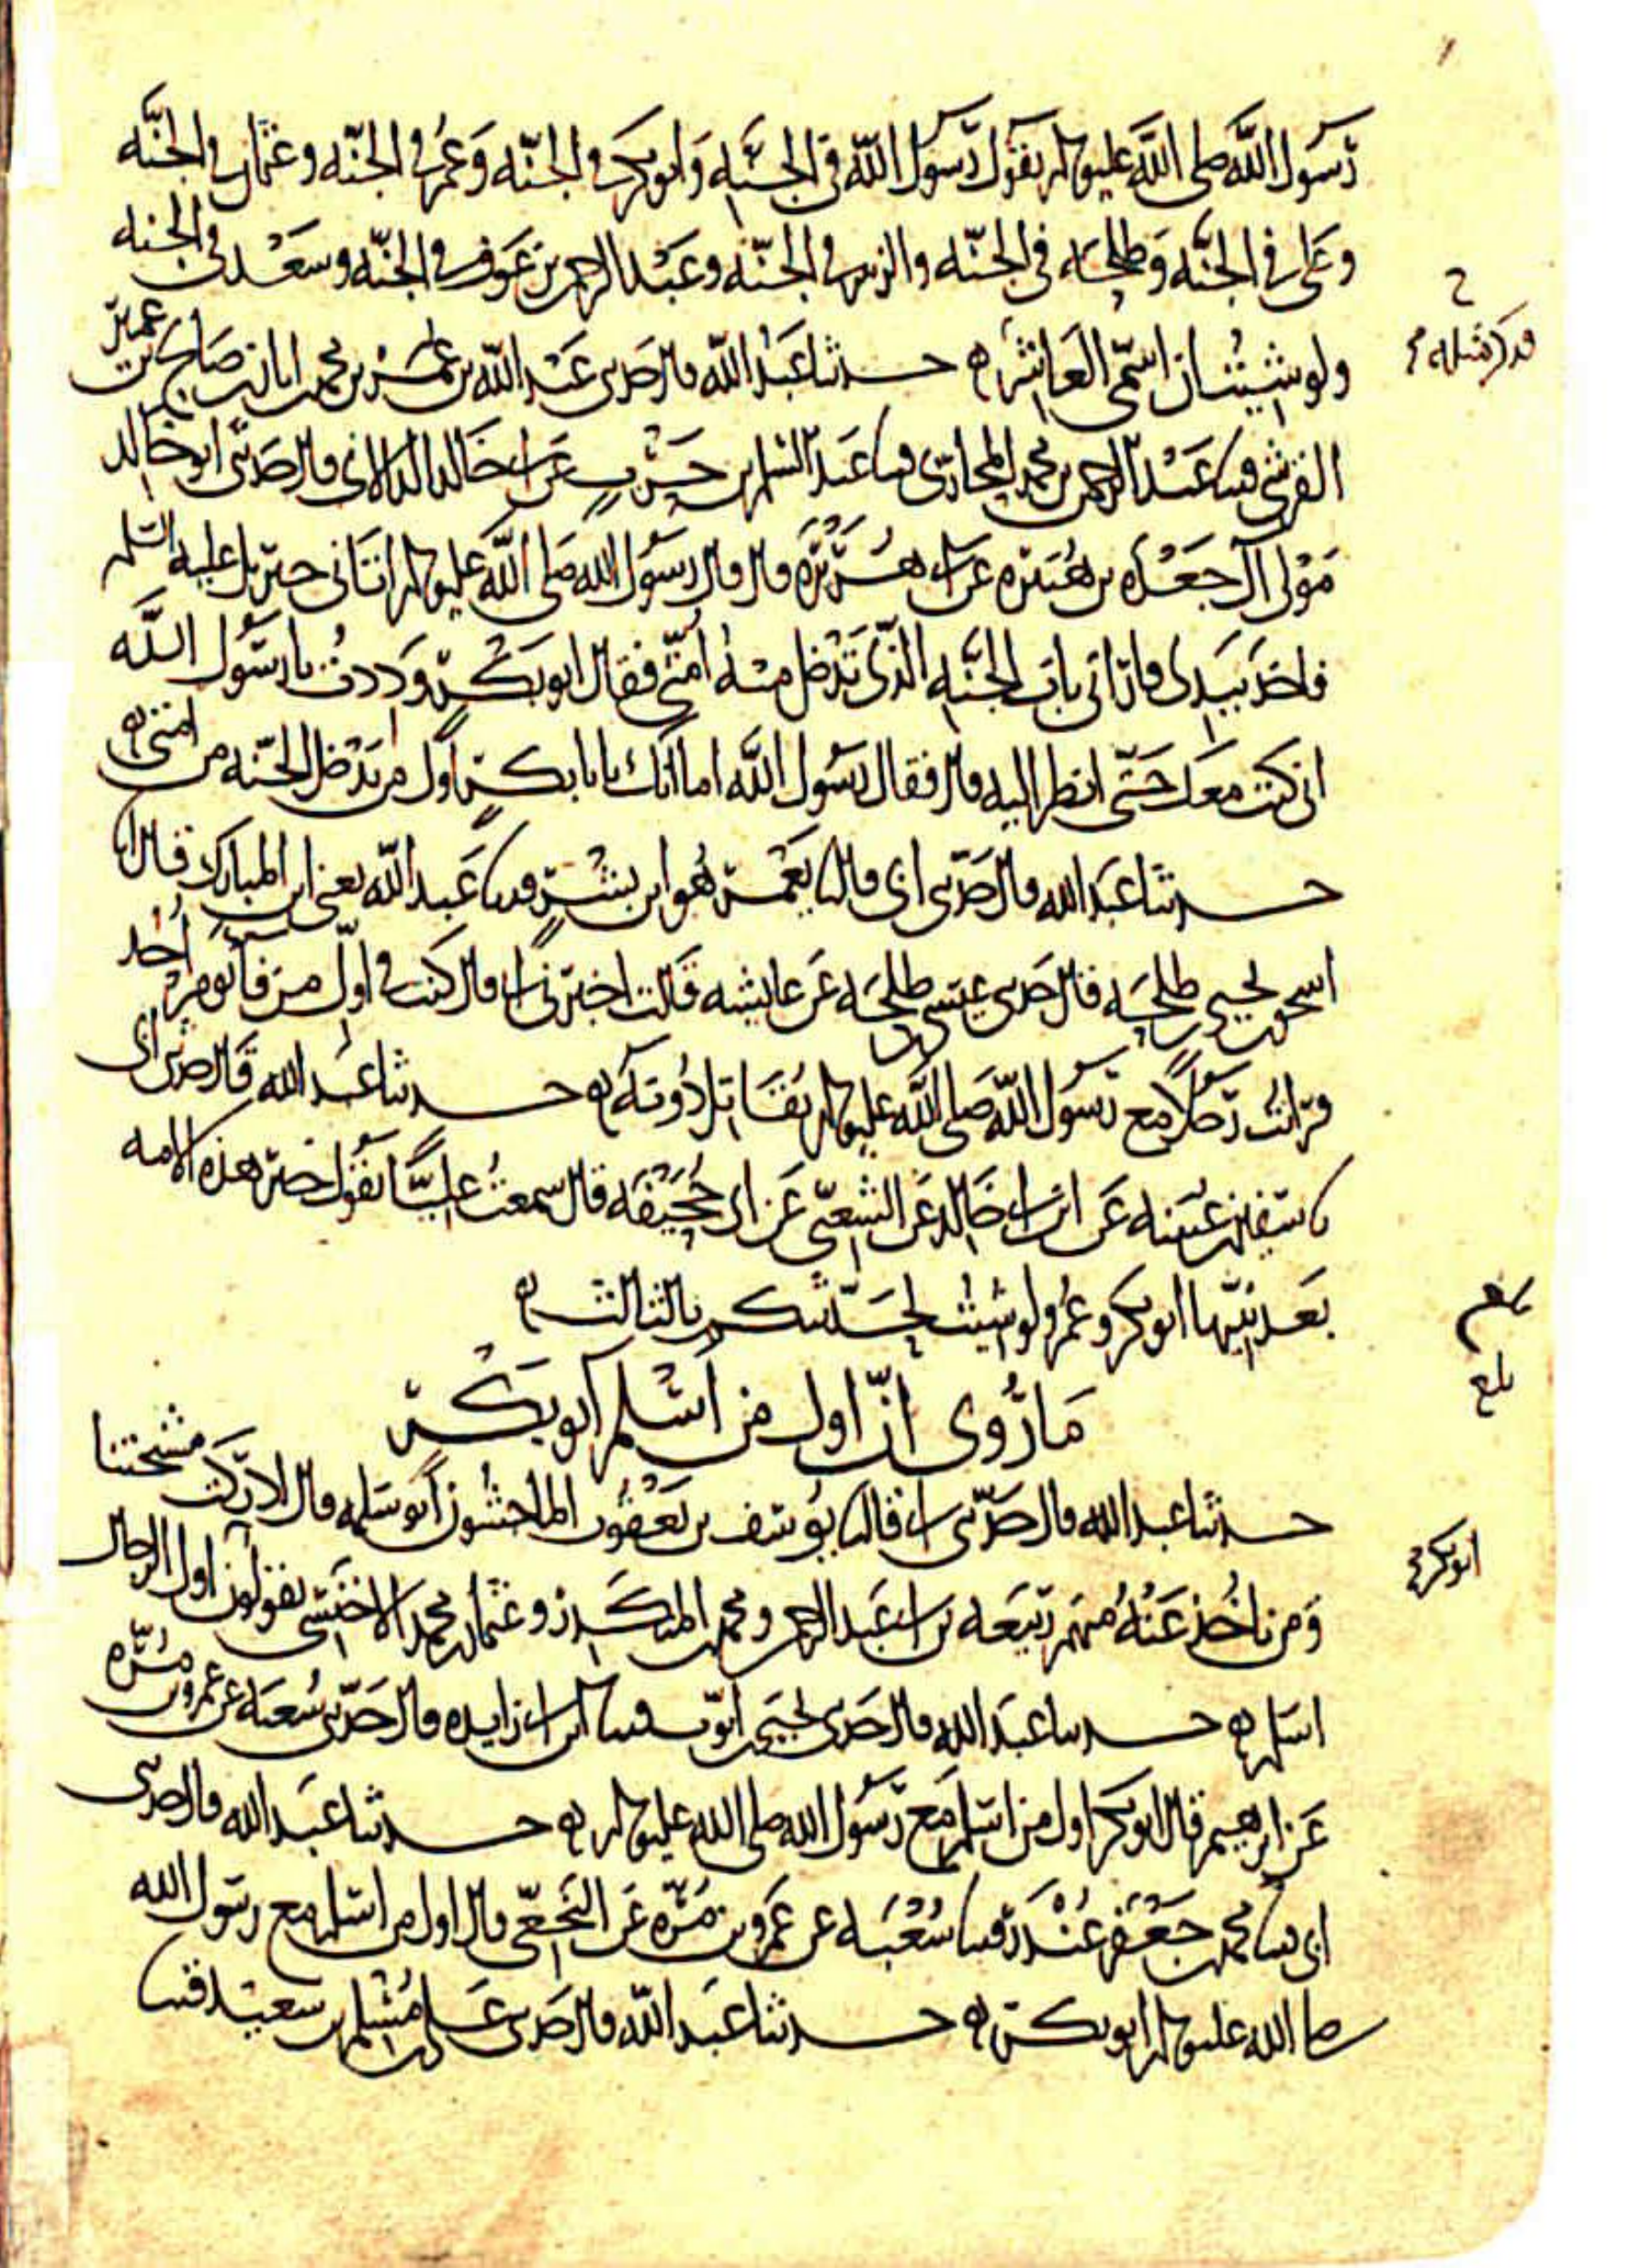 رسول الله صلى الله عليه وسلم يقول رسول الله في الجنه وابو بكر في الجنه وعمر في الجنه وعثمان في الجنه
وعلي في الجنه وطلحه في الجنه والزبير في الجنه وعبد الرحمن بن عوف في الجنه وسعد في الجنه
ولو شيت ان اسمي العاشر ه حدثنا عبد الله قال حدثني عبد الله بن عمر بن محمد بن ابان بن صالح بن عمير
القرشي قثنا عبد الرحمن بن محمد المحاربي قثنا عبد السلام بن حرب عن ابي خالد الدالاني قال حدثني ابو خالد
مولى آل جعده بن هبيره عن ابي هريره قال قال رسول الله صلى الله عليه وسلم اتاني جبريل عليه السلم
فاخذ بيدي فاراني باب الجنه الذي تدخل منه امتي فقال ابو بكر وددت يا رسول الله
اني كنت معك حتى انظر اليه قال فقال رسول الله اما انك يا با بكر اول من يدخل الجنه من امتي ه
حدثنا عبد الله قال حدثني ابي قال نا يعمر هو ابن بشر قثنا عبد الله يعني ابن المبارك قال انا
اسحق بن يحيى بن طلحه قال حدثني عيسى بن طلحه عن عايشه قالت اخبرني ابي قال كنت في اول من فا يوم احد
فرايت رجلا مع رسول الله صلى الله عليه وسلم يقاتل دونه ه حدثنا عبد الله قال حدثني ابي
نا سفين بن عيينه عن ابن ابي خالد عن الشعبي عن ابي جحيفه قال سمعت عليا يقول خير هذه الامه
بعد نبيها ابو بكر وعمر ولو شيت لحدثتكم بالثالث ه
ما روي ان اول من اسلم ابو بكر
حدثنا عبد الله قال حدثني ابي قال نا يوسف بن يعقوب الماجشون ابو سلمه قال ادركت مشيختنا
ومن ناخذ عنه منهم ربيعه بن ابي عبد الرحمن ومحمد بن المنكدر وعثمان بن محمد الاخنسي يقولون اول الرجال
اسلم ه حدثنا عبد الله قال حدثني يحيى بن ايوب قثنا ابن ابي زايده قال حدثني شعبه عن عمرو بن مره
عن ابرهيم قال ابو بكر اول من اسلم مع رسول الله صلى الله عليه وسلم ه حدثنا عبد الله قال حدثني
ابي قثنا محمد بن جعفر غندر قثنا شعبه عن عمرو بن مره عن النخعي قال اول من اسلم مع رسول الله
صلى الله عليه وسلم ابو بكر ه حدثنا عبد الله قال حدثني علي بن مسلم بن سعيد قثنا
ابو بكر
بلغ